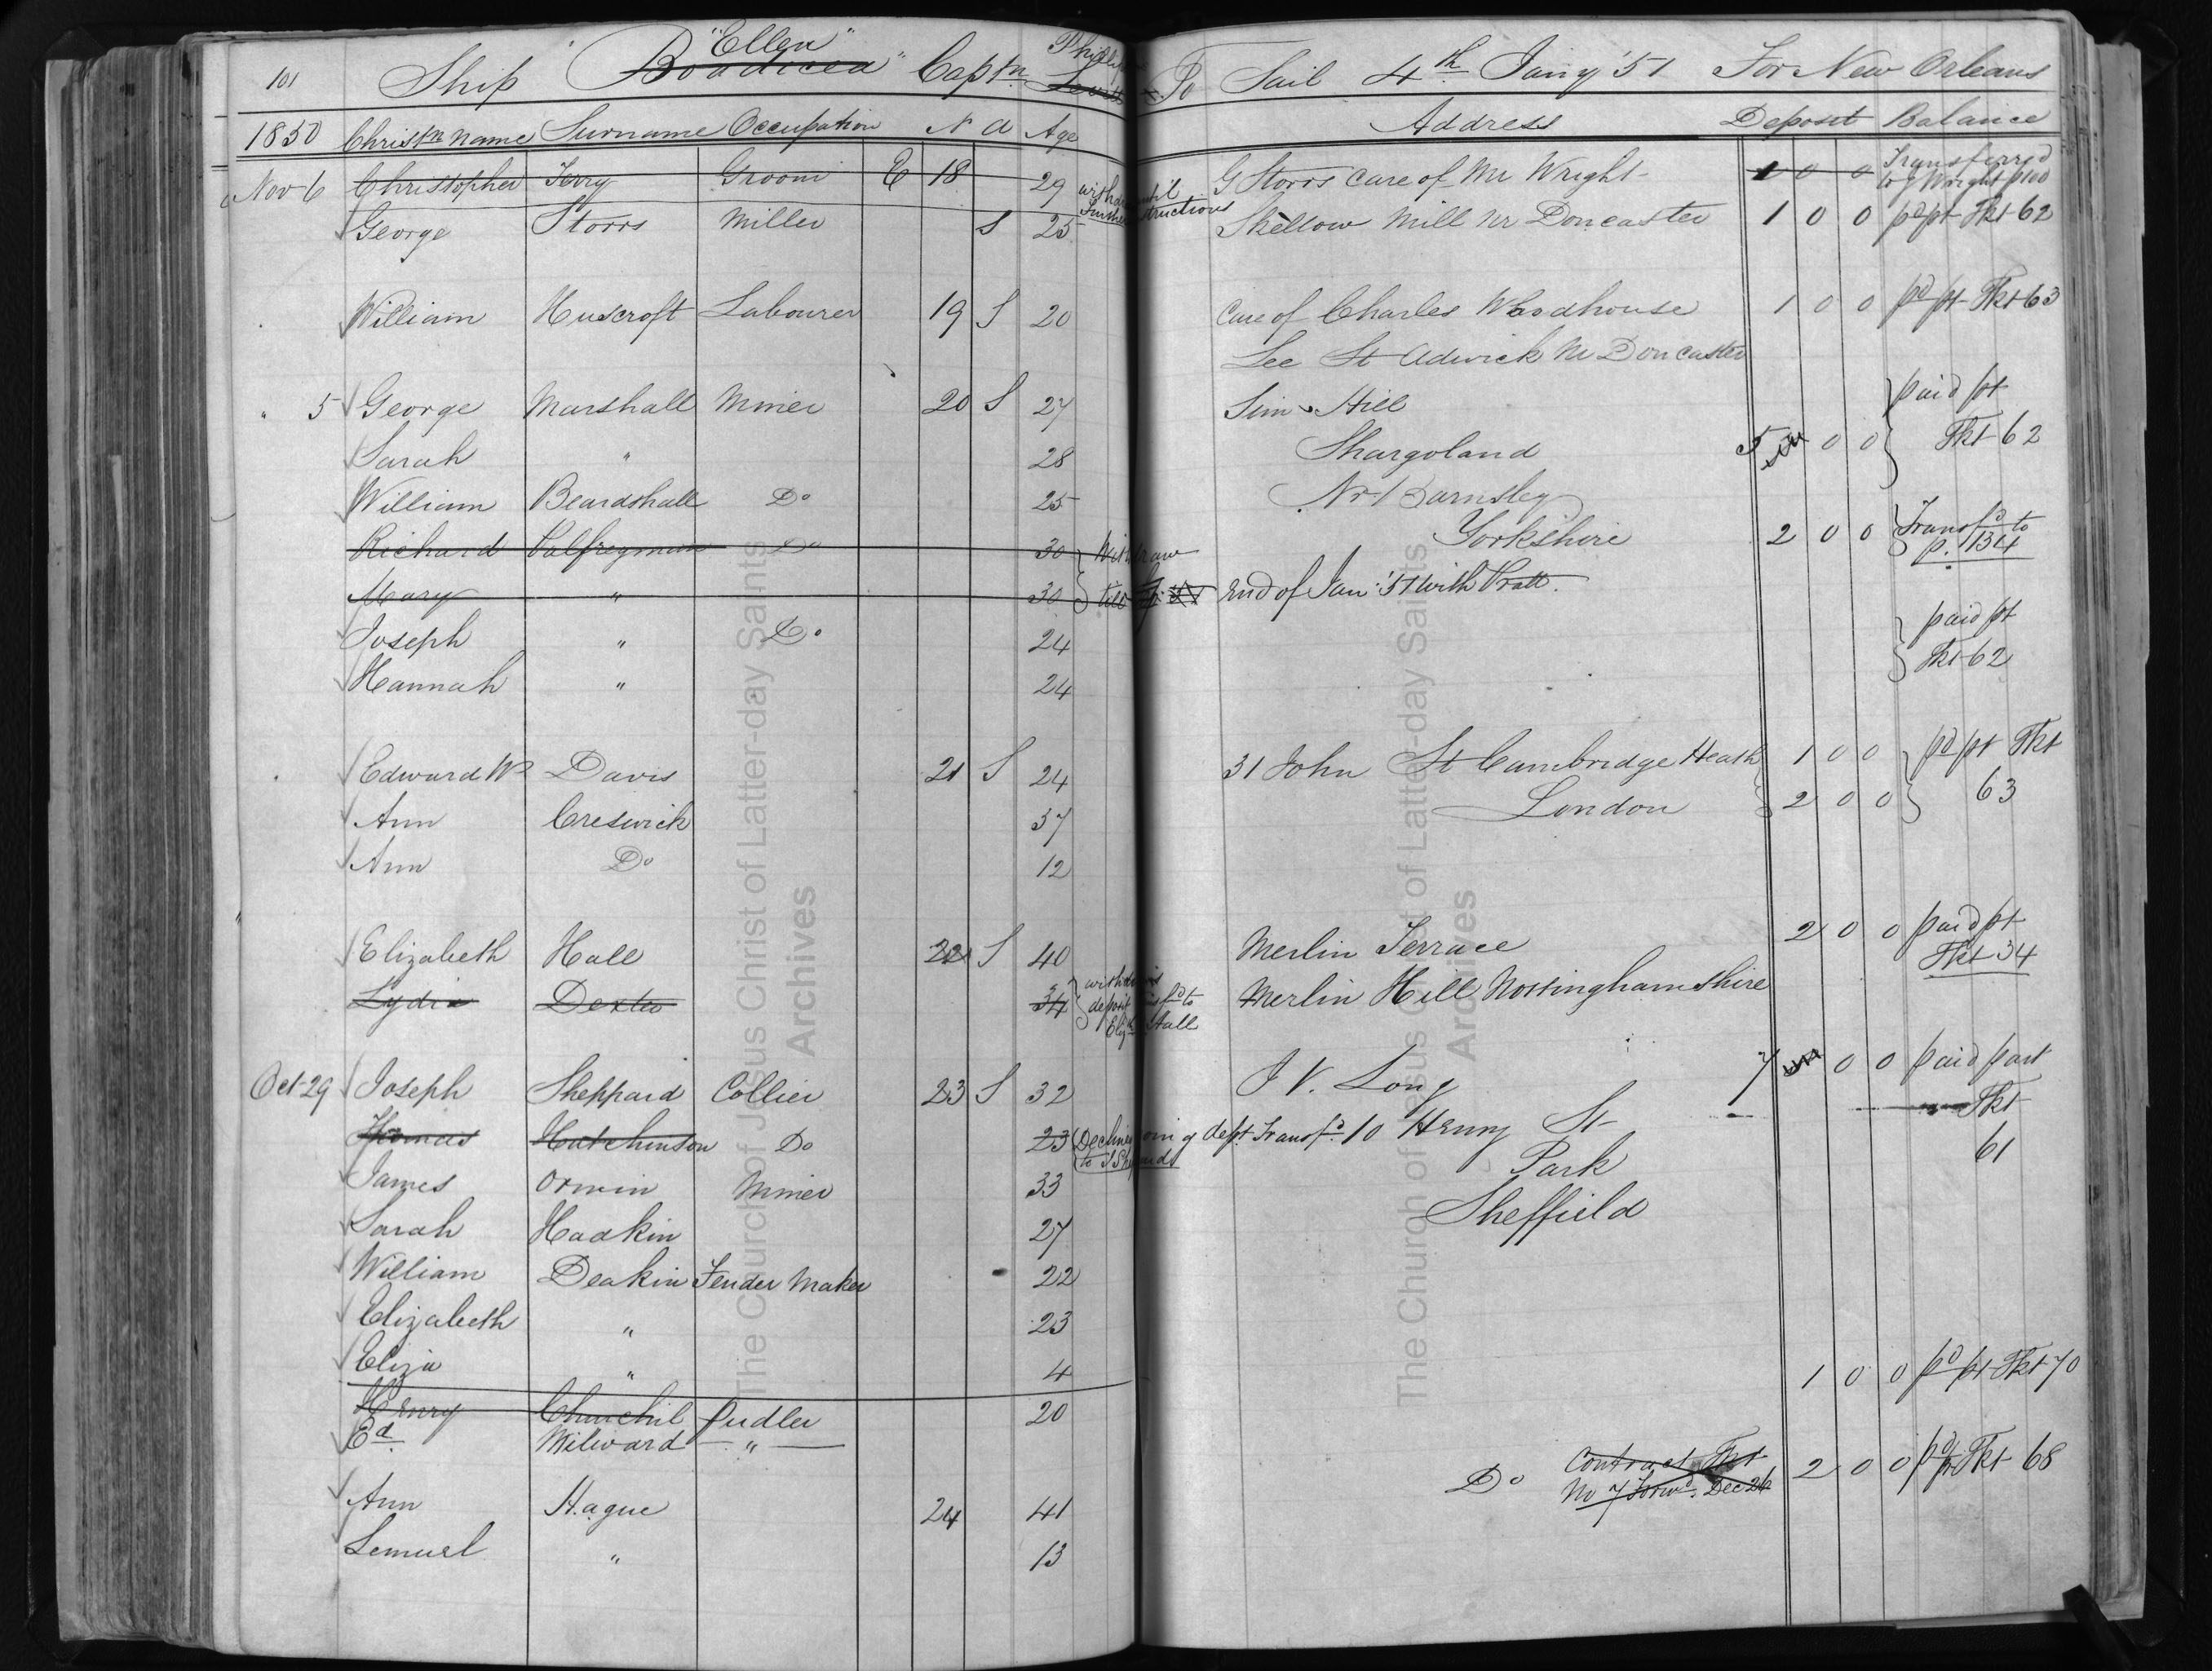 101 Ship "Ellen" "Boadicea" Captn Phillips To Sail 4th Jany '51 For New Orleans
1850 Christn name Surname Occupation N a Age Address Deposit Balance
Nov 6 Christopher Terry Groom E 18 29 withdrawn until further instructions G Storrs care of Mr Wright 1 0 0 Transferred to J Wright p100
George Storrs Miller S 25 Skellow Mill Nr Doncaster 1 0 0 pd pt Tkt 62
William Huscroft Labourer 19 S 20 Care of Charles Woodhouse 1 0 0 pd pt Tkt 63
Lee St Adwick Nr Doncaster
" 5 George Marshall Miner 20 S 27 Sim Hill paid pt
Sarah " 28 Thargoland 5 0 0 Tkt 62
William Beardshall Do 25 Nr Barnsley
Richard Palfreyman Do 30 Withdraw Yorkshire 2 0 0 Transfd to p. 134
Mary " 30 till End of Jan '51 with Pratt.
Joseph " Do 24 paid pt
Hannah " 24 Tkt 62
Edward Wm Davis 21 S 24 31 John St Cambridge Heath 1 0 0 pd pt Tkt
Ann Creswick 37 London 2 0 0 63
Ann Do 12
Elizabeth Hall 22 S 40 Merlin Terrace 2 0 0 paid pt Tkt 34
Lydia Dexter 34 withdraws deposit transfd to Elizth Hall Merlin Hill Nottinghamshire
Oct 29 Joseph Sheppard Collier 23 S 32 J V. Long 7 0 0 paid part
Thomas Hutchinson Do 23 Declines going dept Transfd to J Shepards 10 Henry St Tkt
James Ormin Miner 33 Park 61
Sarah Hadkin 27 Sheffield
William Deakin Fender Maker 22
Elizabeth " 23
Eliza " 4
Henry Churchil Pudler 20 1 0 0 pd pt Tkt 70
Ed. Milward "
Ann Hague 24 41 Do Contract Tkt No 7 Forwd. Dec 26 2 0 0 pd pt Tkt 68
Lemuel " 13
The Church of Jesus Christ of Latter-day Saints
Archives
The Church of Jesus Christ of Latter-day Saints
Archives